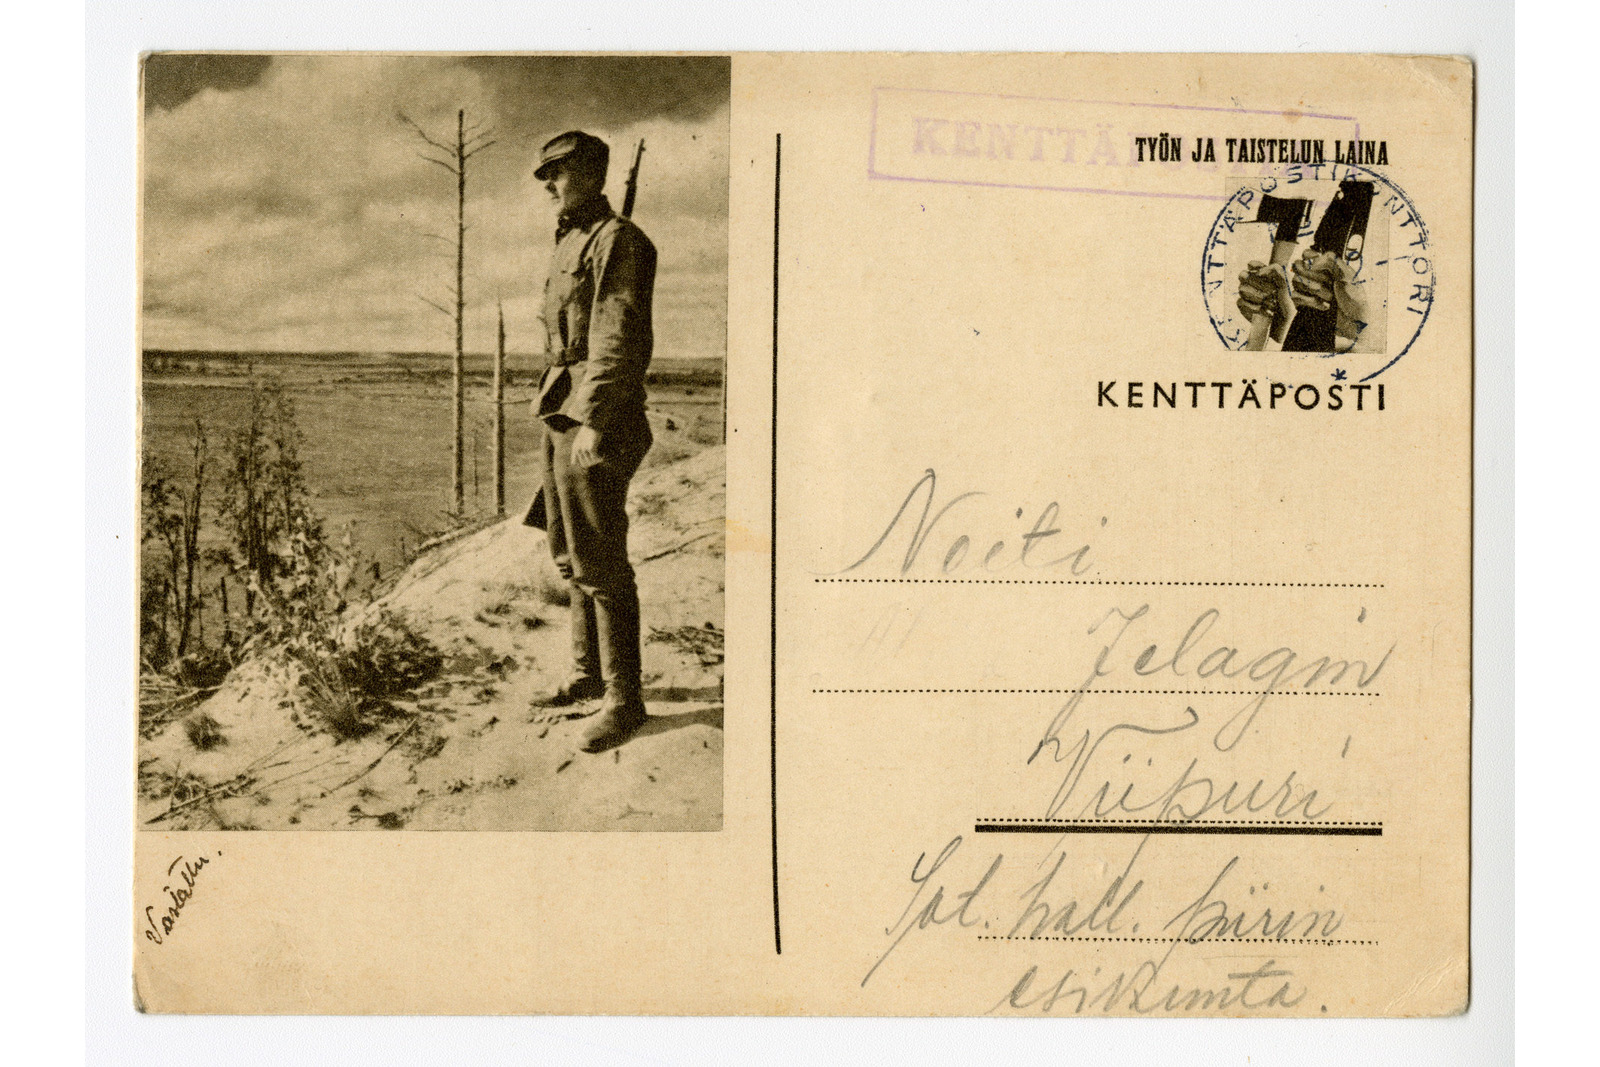 KENTTÄPOSTIA
TYÖN JA TAISTELUN LAINA
KENTTÄPOSTIKONTTORI
KENTTÄPOSTI
Neiti
Jelagin
Viipuri
Sot. hall. piirin
esikunta.
Vastattu.